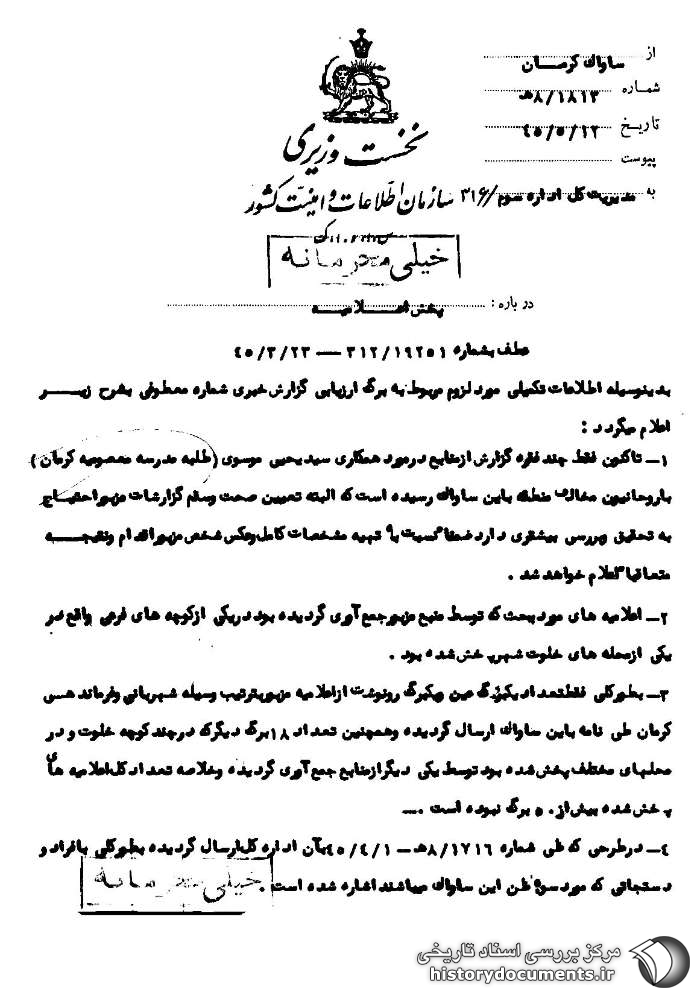 از ساواک کرمــان
شماره ۸/۱۸۱۳هـ
تاریخ ۴۵/۵/۱۲
پیوست
نخست وزیری
به مدیریت کل اداره سوم/۳۱۶ سازمان اطلاعات و امنیت کشور
خیلی محرمانه
درباره: پخش اعــلامیــه
عطف بشماره ۳۱۲/۱۹۲۵۱ ــ ۴۵/۳/۲۳
بدینوسیله اطلاعات تکمیلی مورد لزوم مربوط به برگ ارزیابی گزارش خبری شماره معطوفی بشرح زیــر
اعلام میگردد :
۱ــ تاکنون فقط چند فقره گزارش از منابع در مورد همکاری سید یحیی موسوی (طلبه مدرسه معصومیه کرمان)
با روحانیون مخالف منطقه باین ساواک رسیده است که البته تعیین صحت وسقم گزارشات مزبور احتیــاج
به تحقیق وبررسی بیشتری دارد ضمنا نسبت به تهیه مشخصات کامل وعکس شخص مزبور اقدام ونتیجــه
متعاقبا اعلام خواهد شد .
۲ــ اعلامیه های مورد بحث که توسط منبع مزبور جمع آوری گردیده بود در یکی از کوچه های فرعی واقع در
یکی از محله های خلوت شهر پخش شده بود .
۳ــ بطور کلی فقط تعداد یکبرگ عین ویکبرگ رونوشت از اعلامیه مزبور بترتیب وسیله شهربانی وفرماندهی
کرمان طی نامه باین ساواک ارسال گردیده وهمچنین تعداد ۱۸ برگ دیگر که در چند کوچه خلوت و در
محلهای مختلف پخش شده بود توسط یکی دیگر از منابع جمع آوری گردیده وخلاصه تعداد کل اعلامیه های
پخش شده بیش از ۵۰ برگ نبوده است .ــ
۴ــ در طرحی که طی شماره ۸/۱۷۱۶هـ ــ ۴۵/۴/۱ بآن اداره کل ارسال گردیده بطور کلی بافراد و
دستجاتی که مورد سوء ظن این ساواک میباشند اشاره شده است .
خیلی محرمانه
مرکز بررسی اسناد تاریخی
historydocuments.ir